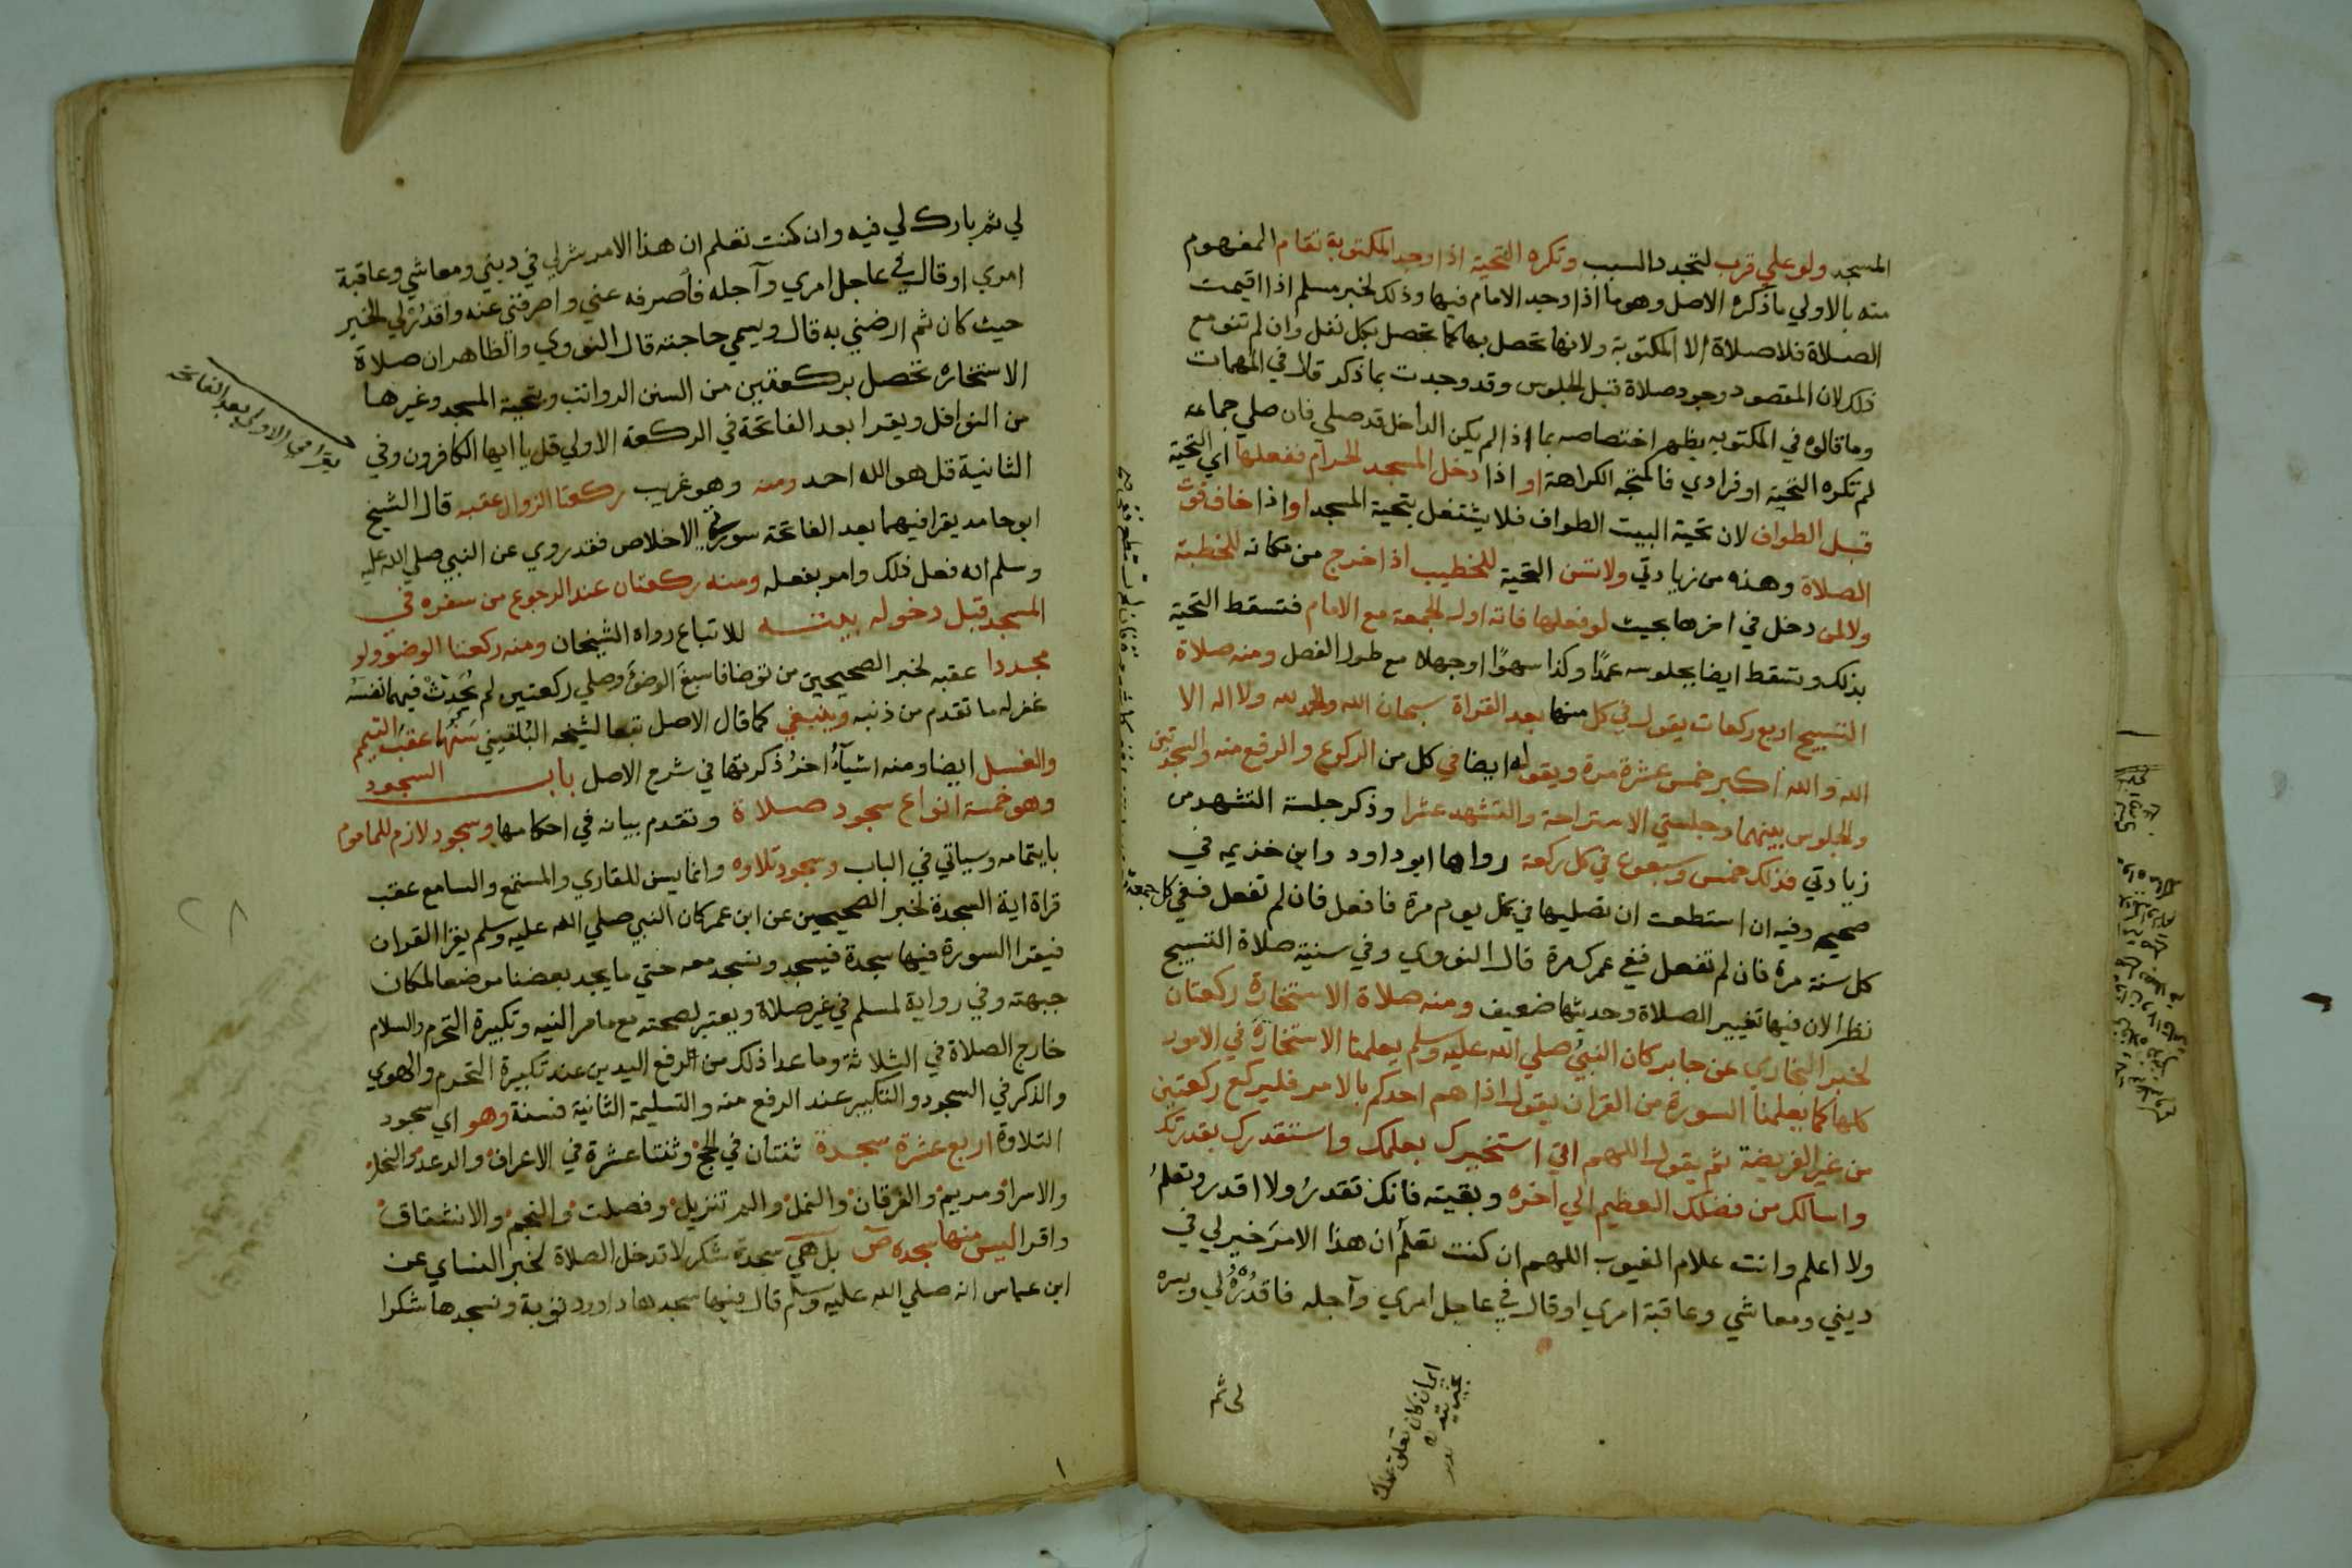 المسجد ولو علي قرب لتجدد السبب وتكره التحية اذا وجد المكتوبة تقام المفهوم
منه بالاولي ما ذكره الاصل وهو ما اذا وجد الامام فيها وذلك لخبر مسلم اذا اقيمت
الصلاة فلا صلاة الا المكتوبة ولانها تحصل بها كما تحصل بكل نفل وان لم تنو مع
ذلك لان المقصود وجود صلاة قبل الجلوس وقد وجدت بما ذكر قال في المهمات
وما قالوه في المكتوبه يظهر اختصاصه بما اذا لم يكن الداخل قد صلي فان صلي جماعه
لم تكره التحية او فرادي فالمتجه الكراهة او اذا دخل المسجد الحرام ففعلها اي التحية
قبل الطواف لان تحية البيت الطواف فلا يشتغل بتحية المسجد او اذا خاف فوت
الصلاة وهذه من زيادتي ولا تسن التحية للخطيب اذا خرج من مكانه للخطبة
ولا لمن دخل في اخرها بحيث لو فعلها فاته اول الجمعة مع الامام فتسقط التحية
بذلك وتسقط ايضا بجلوسه عمدًا وكذا سهوًا او جهلا مع طول الفصل ومنه صلاة
التسبيح اربع ركعات يقول في كل منها بعد القراة سبحان الله والحمد لله ولا اله الا
الله والله اكبر خمس عشرة مرة ويقوله ايضا في كل من الركوع والرفع منه والسجدتين
والجلوس بينهما وجلستي الاستراحة والتشهد عشرا وذكر جلسة التشهد من
زيادتي فذلك خمس وسبعون في كل ركعة رواها ابو داود وابن خذيمه في
صحيحه وفيه ان استطعت ان تصليها في كل يوم مرة فافعل فان لم تفعل ففي كل جمعة
كل سنة مرة فان لم تفعل ففي عمرك مرة قال النووي وفي سنية صلاة التسبيح
نظر لان فيها تغيير الصلاة وحديثها ضعيف ومنه صلاة الاستخارة ركعتان
لخبر البخاري عن جابر كان النبيُ صلي الله عليه وسلم يعلمنا الاستخارة في الامور
كلها كما يعلمنا السورة من القران يقول اذا هم احدكم بالامر فليركع ركعتين
من غير الفريضة ثم يقول اللهم اني استخيرك بعلمك واستقدرك بقدرتك
واسالك من فضلك العظيم الي اخره وبقيته فانك تقدرُ ولا اقدر وتعلمُ
ولا اعلم وانت علام الغيوب اللهم ان كنت تعلم ان هذا الامرَ خير لي في
ديني ومعاشي وعاقبة امري او قال في عاجل امري وآجله فاقدُرْهُ لي ويسره
لى ثم
لي ثم بارك لي فيه وان كنت تعلم ان هذا الامر شر لي في ديني ومعاشي وعاقبة
امري او قال في عاجل امري وآجله فأصرفه عني واصرفني عنه واقدُرْ لي الخير
حيث كان ثم ارضني به قال ويسمي حاجته قال النووي والظاهر ان صلاة
الاستخاره تحصل بركعتين من السنن الرواتب وبتحية المسجد وغيرها
من النوافل ويقرا بعد الفاتحة في الركعة الاولي قل يا ايها الكافرون وفي
الثانية قل هو الله احد ومنه وهو غريب ركعتا الزوال عقبه قال الشيخ
ابو حامد يقرا فيهما بعد الفاتحة سورتي الاخلاص فقد روي عن النبي صلي الله عليه
وسلم انه فعل ذلك وامر بفعله ومنه ركعتان عند الرجوع من سفره في
المسجد قبل دخوله بيته للاتباع رواه الشيخان ومنه ركعتا الوضوء ولو
مجددا عقبه لخبر الصحيحين من توضا فاسبغ الوضوَ وصلي ركعتين لم يُحَدِثْ فيهما نفسَهُ
غفر له ما تقدم من ذنبه وينبغي كما قال الاصل تبعا لشيخه البُلقيني سَنُّها عقب التيمم
والغسل ايضا ومنه اشيآءُ اخرُ ذكرتها في شرح الاصل باب السجود
وهو خمسة انواع سجود صلاة وتقدم بيانه في احكامها وسجود لازم للماموم
بايتمامه وسياتي في الباب وسجود تلاوه وانما يسن للقاري والمستمع والسامع عقب
قراة اية السجدة لخبر الصحيحين عن ابن عمر كان النبي صلي الله عليه وسلم يقرا القران
فيقرا السورة فيها سجدة فيسجد ونسجد معه حتي ما يجد بعضنا موضعا لمكان
جبهته وفي رواية لمسلم في غير صلاة ويعتبر لصحته مع ما مر النيه وتكبيرة التحرم والسلام
خارج الصلاة في الثلاثة وما عدا ذلك من الرفع اليدين عند تكبيرة التحرم والهوي
والذكر في السجود والتكبير عند الرفع منه والتسليمة الثانية فسنة وهو اي سجود
التلاوة اربع عشرة سجدة ثنتان في الحج وثنتا عشرة في الاعراف والرعد والنحل
والاسرا ومريم والفرقان والنمل والم تنزيل وفصلت والنجم والانشقاق
واقرا ليس منها سجده صٓ بل هي سجدة شكر لا تدخل الصلاة لخبر النساي عن
ابن عباس انه صلي الله عليه وسلم قال فيها سجدها داوود توبة ونسجدها شكرا
يقرا في الاولى بعد الفاتحة